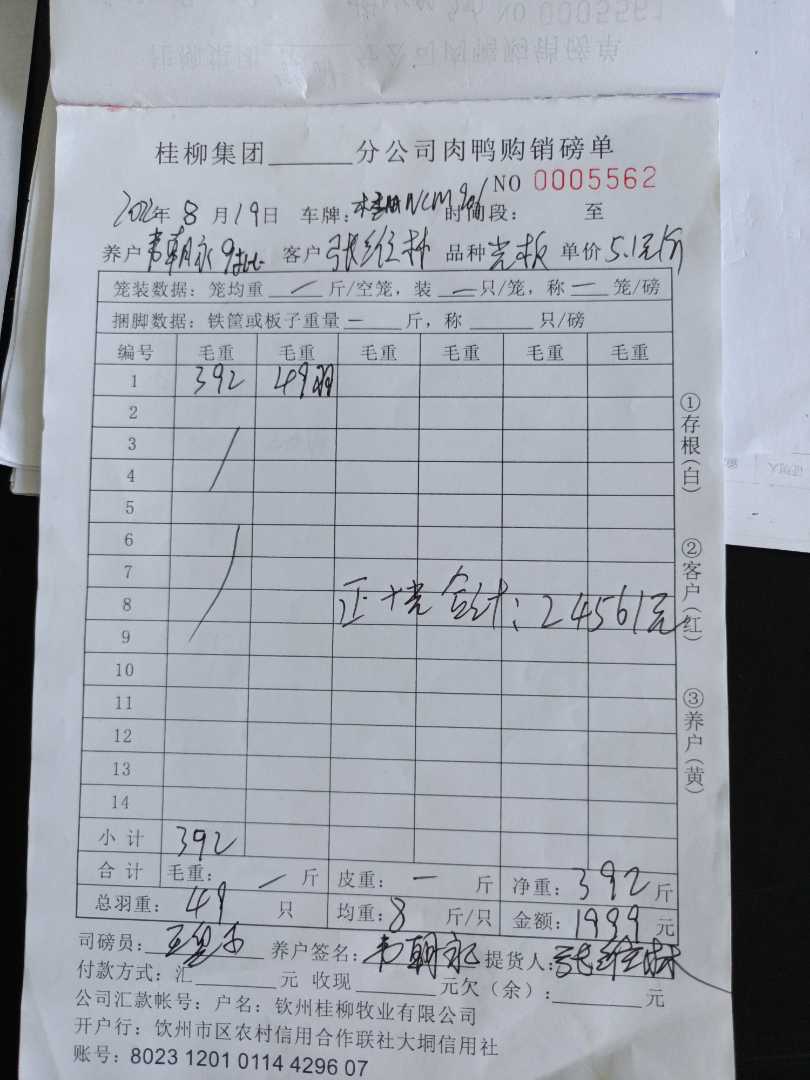 桂柳集团______分公司肉鸭购销磅单
NO 0005562
2022年 8 月 19 日 车牌: 时间段: 至
养户 韦朝永 9批 客户 张维林 品种 光板 单价 5.1元/斤
笼装数据: 笼均重 / 斤/空笼, 装 — 只/笼, 称 — 笼/磅
捆脚数据: 铁筐或板子重量 — 斤, 称 只/磅
编号 毛重 毛重 毛重 毛重 毛重 毛重
1 392 49羽
2
3
4
5
6
7
8 正+光 合计: 24561元
9
10
11
12
13
14
小 计 392
合 计 毛重: — 斤 皮重: — 斤 净重: 392 斤
总羽重: 49 只 均重: 8 斤/只 金额: 1999 元
司磅员: 养户签名: 韦朝永 提货人: 张维林
付款方式: 汇 元 收现 元欠(余): 元
公司汇款帐号: 户名: 钦州桂柳牧业有限公司
开户行: 钦州市区农村信用合作联社大垌信用社
账号: 8023 1201 0114 4296 07
①存根(白)
②客户(红)
③养户(黄)